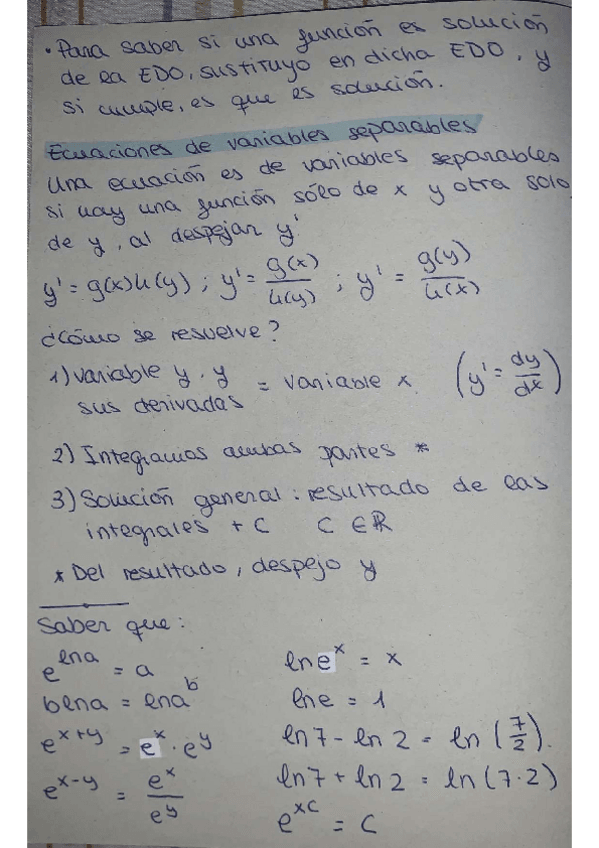 · Para saber si una función es solución
de la EDO, sustituyo en dicha EDO, y
si cumple, es que es solución.
Ecuaciones de variables separables
Una ecuación es de variables separables
si hay una función sólo de x y otra solo
de y, al despejar y'
y' = g(x)h(y) ; y' = g(x)/h(y) ; y' = g(y)/h(x)
¿Cómo se resuelve?
1) variable y · y sus derivadas = variable x (y' = dy/dx)
2) Integramos ambas partes *
3) Solución general: resultado de las
integrales + C C ∈ ℝ
* Del resultado, despejo y
Saber que:
e^{ln a} = a ln e^x = x
b ln a = ln a^b ln e = 1
e^{x+y} = e^x · e^y ln 7 - ln 2 = ln (7/2).
e^{x-y} = e^x/e^y ln 7 + ln 2 = ln (7·2)
e^{xc} = C